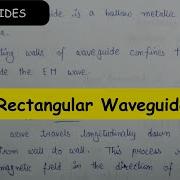 IDES
uide is a hollow metallic
ting walls of waveguide confines t
de the EM wave.
Rectangular Waveguid
wave travels longitudinally down
from wall to wall. This process
magnetic field in the direction of